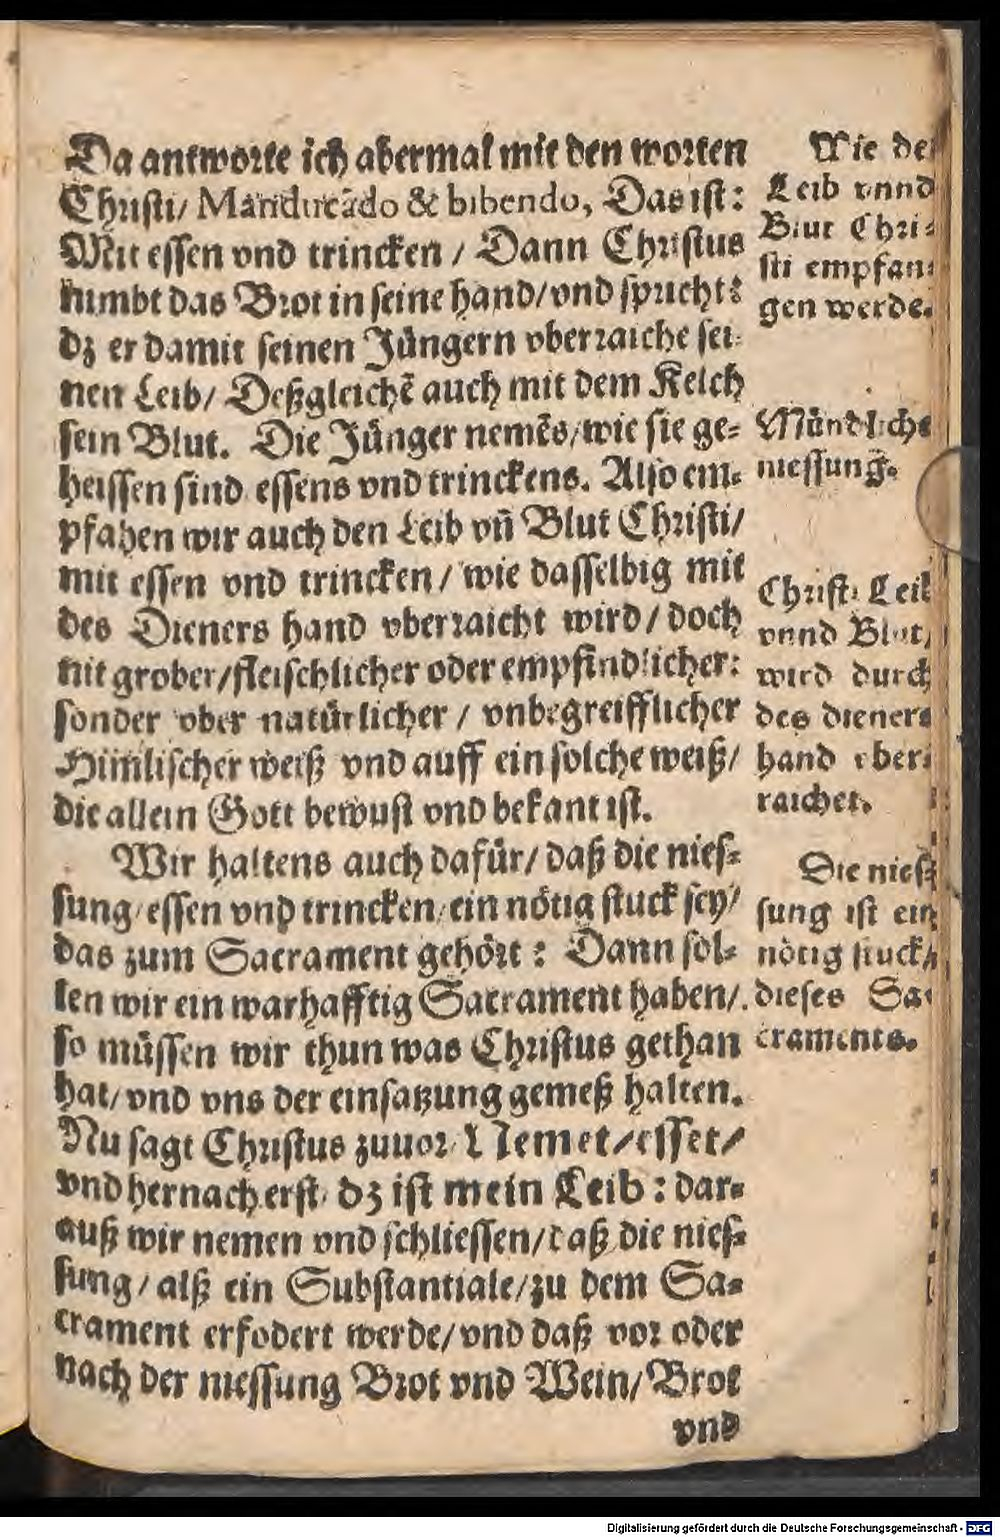 Da antworte ich abermal mit den worten
Christi/ Manducãdo & bibendo, Das ist:
Mit essen vnd trincken / Dann Christus
nimbt das Brot in seine hand/vnd spricht:
dz er damit seinen Jüngern vberraiche sei-
nen Leib/ Deßgleichẽ auch mit dem Kelch
sein Blut. Die Jünger nemẽs/wie sie ge-
heissen sind essens vnd trinckens. Also em-
pfahen wir auch den Leib vñ Blut Christi/
mit essen vnd trincken/ wie dasselbig mit
des Dieners hand vberraicht wird/ doch
nit grober/fleischlicher oder empfindlicher:
sonder vber natürlicher / vnbegreifflicher
Him̃lischer weiß vnd auff ein solche weiß/
die allein Gott bewust vnd bekant ist.
Wir haltens auch dafür/ daß die nies-
sung/essen vnd trincken/ein nötig stuck sey/
das zum Sacrament gehört: Dann sol-
len wir ein warhafftig Sacrament haben/
so müssen wir thun was Christus gethan
hat/vnd vns der einsatzung gemeß halten.
Nu sagt Christus zuuor/ Nemet/esset/
vnd hernach erst/ dz ist mein Leib: dar-
auß wir nemen vnd schliessen/daß die nies-
sung/ alß ein Substantiale/zu dem Sa-
crament erfodert werde/vnd daß vor oder
nach der niessung Brot vnd Wein/Brot
vnd
Wie der
Leib vnnd
Blut Chri-
sti empfan-
gen werde.
Mündliche
niessung.
Christi Leib
vnnd Blut/
wird durch
des dieners
hand vber-
raichet.
Die nies-
sung ist ein
nötig stuck/
dieses Sa-
craments.
Digitalisierung gefördert durch die Deutsche Forschungsgemeinschaft - DFG